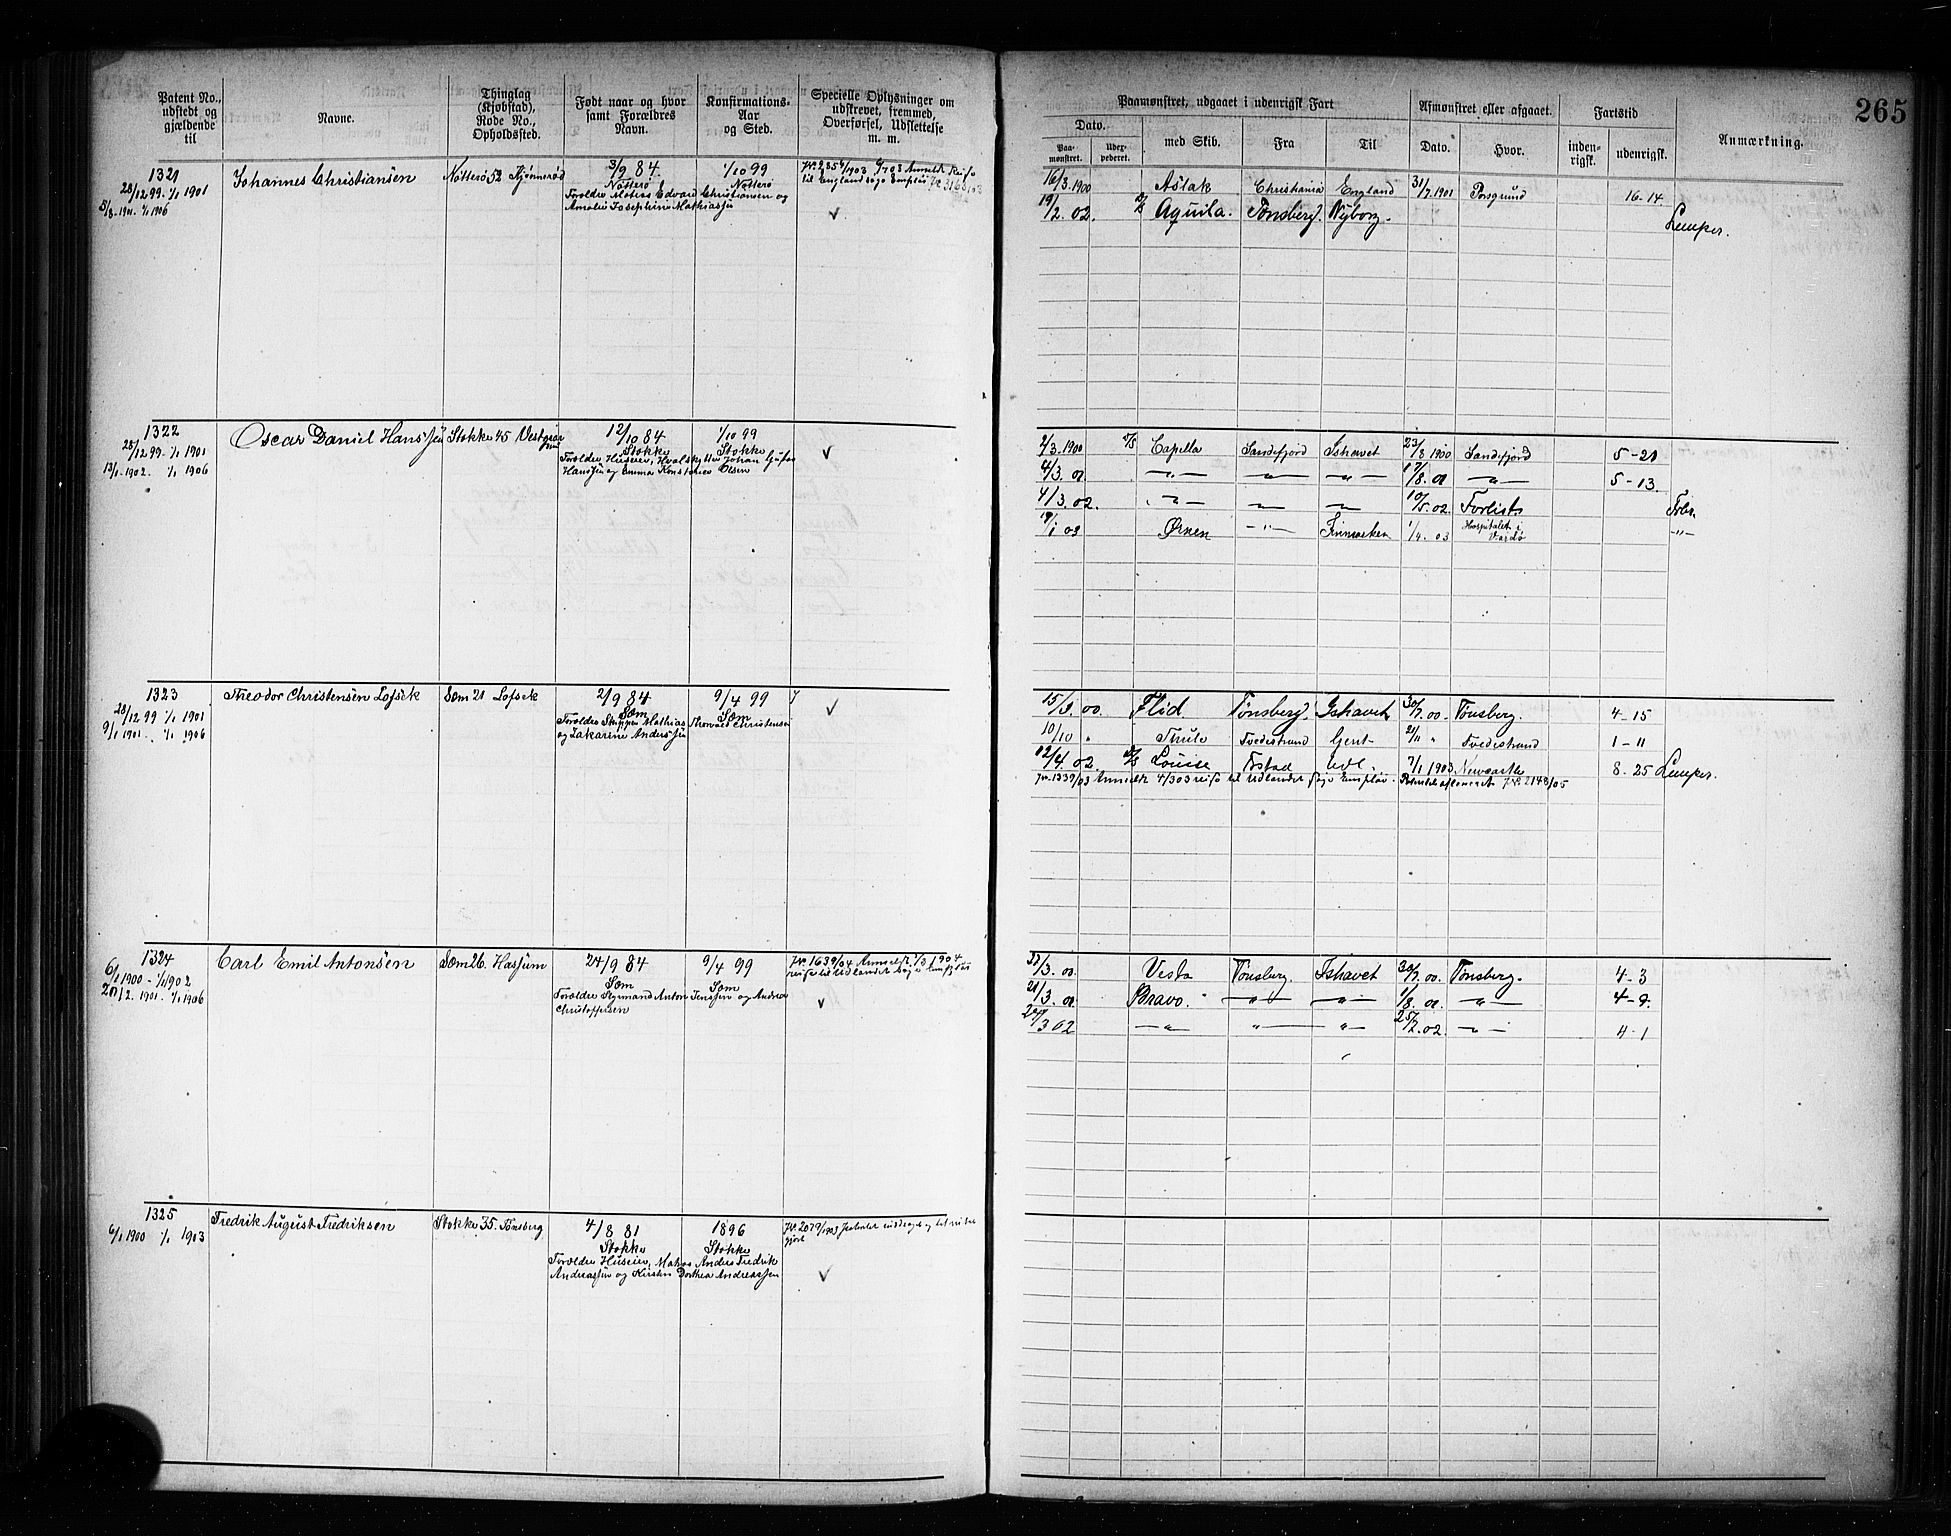 265
Patent No., udstedt og gjældende til
Navne.
Thinglag (Kjøbstad), Rode No., Opholdssted.
Født naar og hvor samt Forældres Navn.
Konfirmations-Aar og Sted.
Specielle Oplysninger om udskrevet, fremmed, Overførsel, Udslettelse m. m.
Paamønstret, udgaaet i udenrigsk Fart
Dato.
Paa-mønstret.
Udex-pederet.
med Skib.
Fra
Til
Afmønstret eller afgaaet.
Dato.
Hvor.
Fartstid
inden-rigsk.
udenrigsk.
Anmærkning.
1321
28/12 99. 1/1 1901
1/1 1906
Johannes Christiansen
Nøtterø 52
3/9 84.
Nøtterø
Forældre Edvard Christiansen og
Amalie Josephine Mathiasen
1/10 99
Nøtterø
til England søge
16/3 1900 Aslak Christiania England 31/7 1901 Porsgrund 16-14
19/2 02. Aquila. Tønsberg. Nyborg.
Lemper.
1322
28/12 99. 1/1 1901
13/1 1902. 1/1 1906
Oscar Daniel Hanssen
Stokke 45
12/10 84
Stokke
Forældre Huseier, Johan
Hanssen og Emma Olsen
1/10 99
Stokke
2/3 1900 Capella Sandefjord Ishavet 23/8 1900 Sandefjord 5-21
4/3. 01 —„— —„— —„— 17/8. 01 —„— 5-13.
4/3. 02. —„— —„— —„— 10/5. 02. Forlist.
19/1 03 Ørnen —„— Finmarken 1/4. 03 Hospitalet i Vardø —„—
1323
28/12 99 1/1 1901
9/1 1901. 1/1 1906
Theodor Christensen Lofsek
Sem 21 Lofsek
2/9 84
Sem
Forældre Skipper Mathias Thorvald Christensen
og Zakarine Anderssen
9/4 99
Sem
15/3. 00. Flid Tønsberg. Ishavet 30/7. 00. Tønsberg. 4-15
10/10 „ Thule Tvedestrand Gent 21/11 „ Tvedestrand 1-11
12/4. 02. Louise Udl. 7/1 1903 Newcastle 8-25 Lemper.
Jr. 1339/03 Anmeldt 4/3 03 reise til Udlandet søge 2148/05
1324
6/1 1900 - 1/1 1902
1901. 1/1 1906
Carl Emil Antonsen
Sem 26. Hassum
24/9 84
Sem
Forældre Styrmand Anton Jenssen og Andrea
Christoffersen
9/4 99
Sem
Jr. 1639/04 Anmeldt 1904
reise til Udlandet søge
/3. 00. Vesta Tønsberg. Ishavet 30/7. 00. Tønsberg. 4-3
21/3. 01 Bravo. —„— —„— 1/8. 01. —„— 4-9.
/3 02 —„— „— —„— 25/7. 02. —„— 4-1
1325
6/1 1900 1/1 1903
Fredrik August Fredriksen
Stokke 35. Tønsberg
4/8 81
Stokke
Forældre Huseier, Anders Fredrik
Andreassen og Kirsten Dorthea Andreassen
1896
Stokke
Jr. 2079/1903
gjort